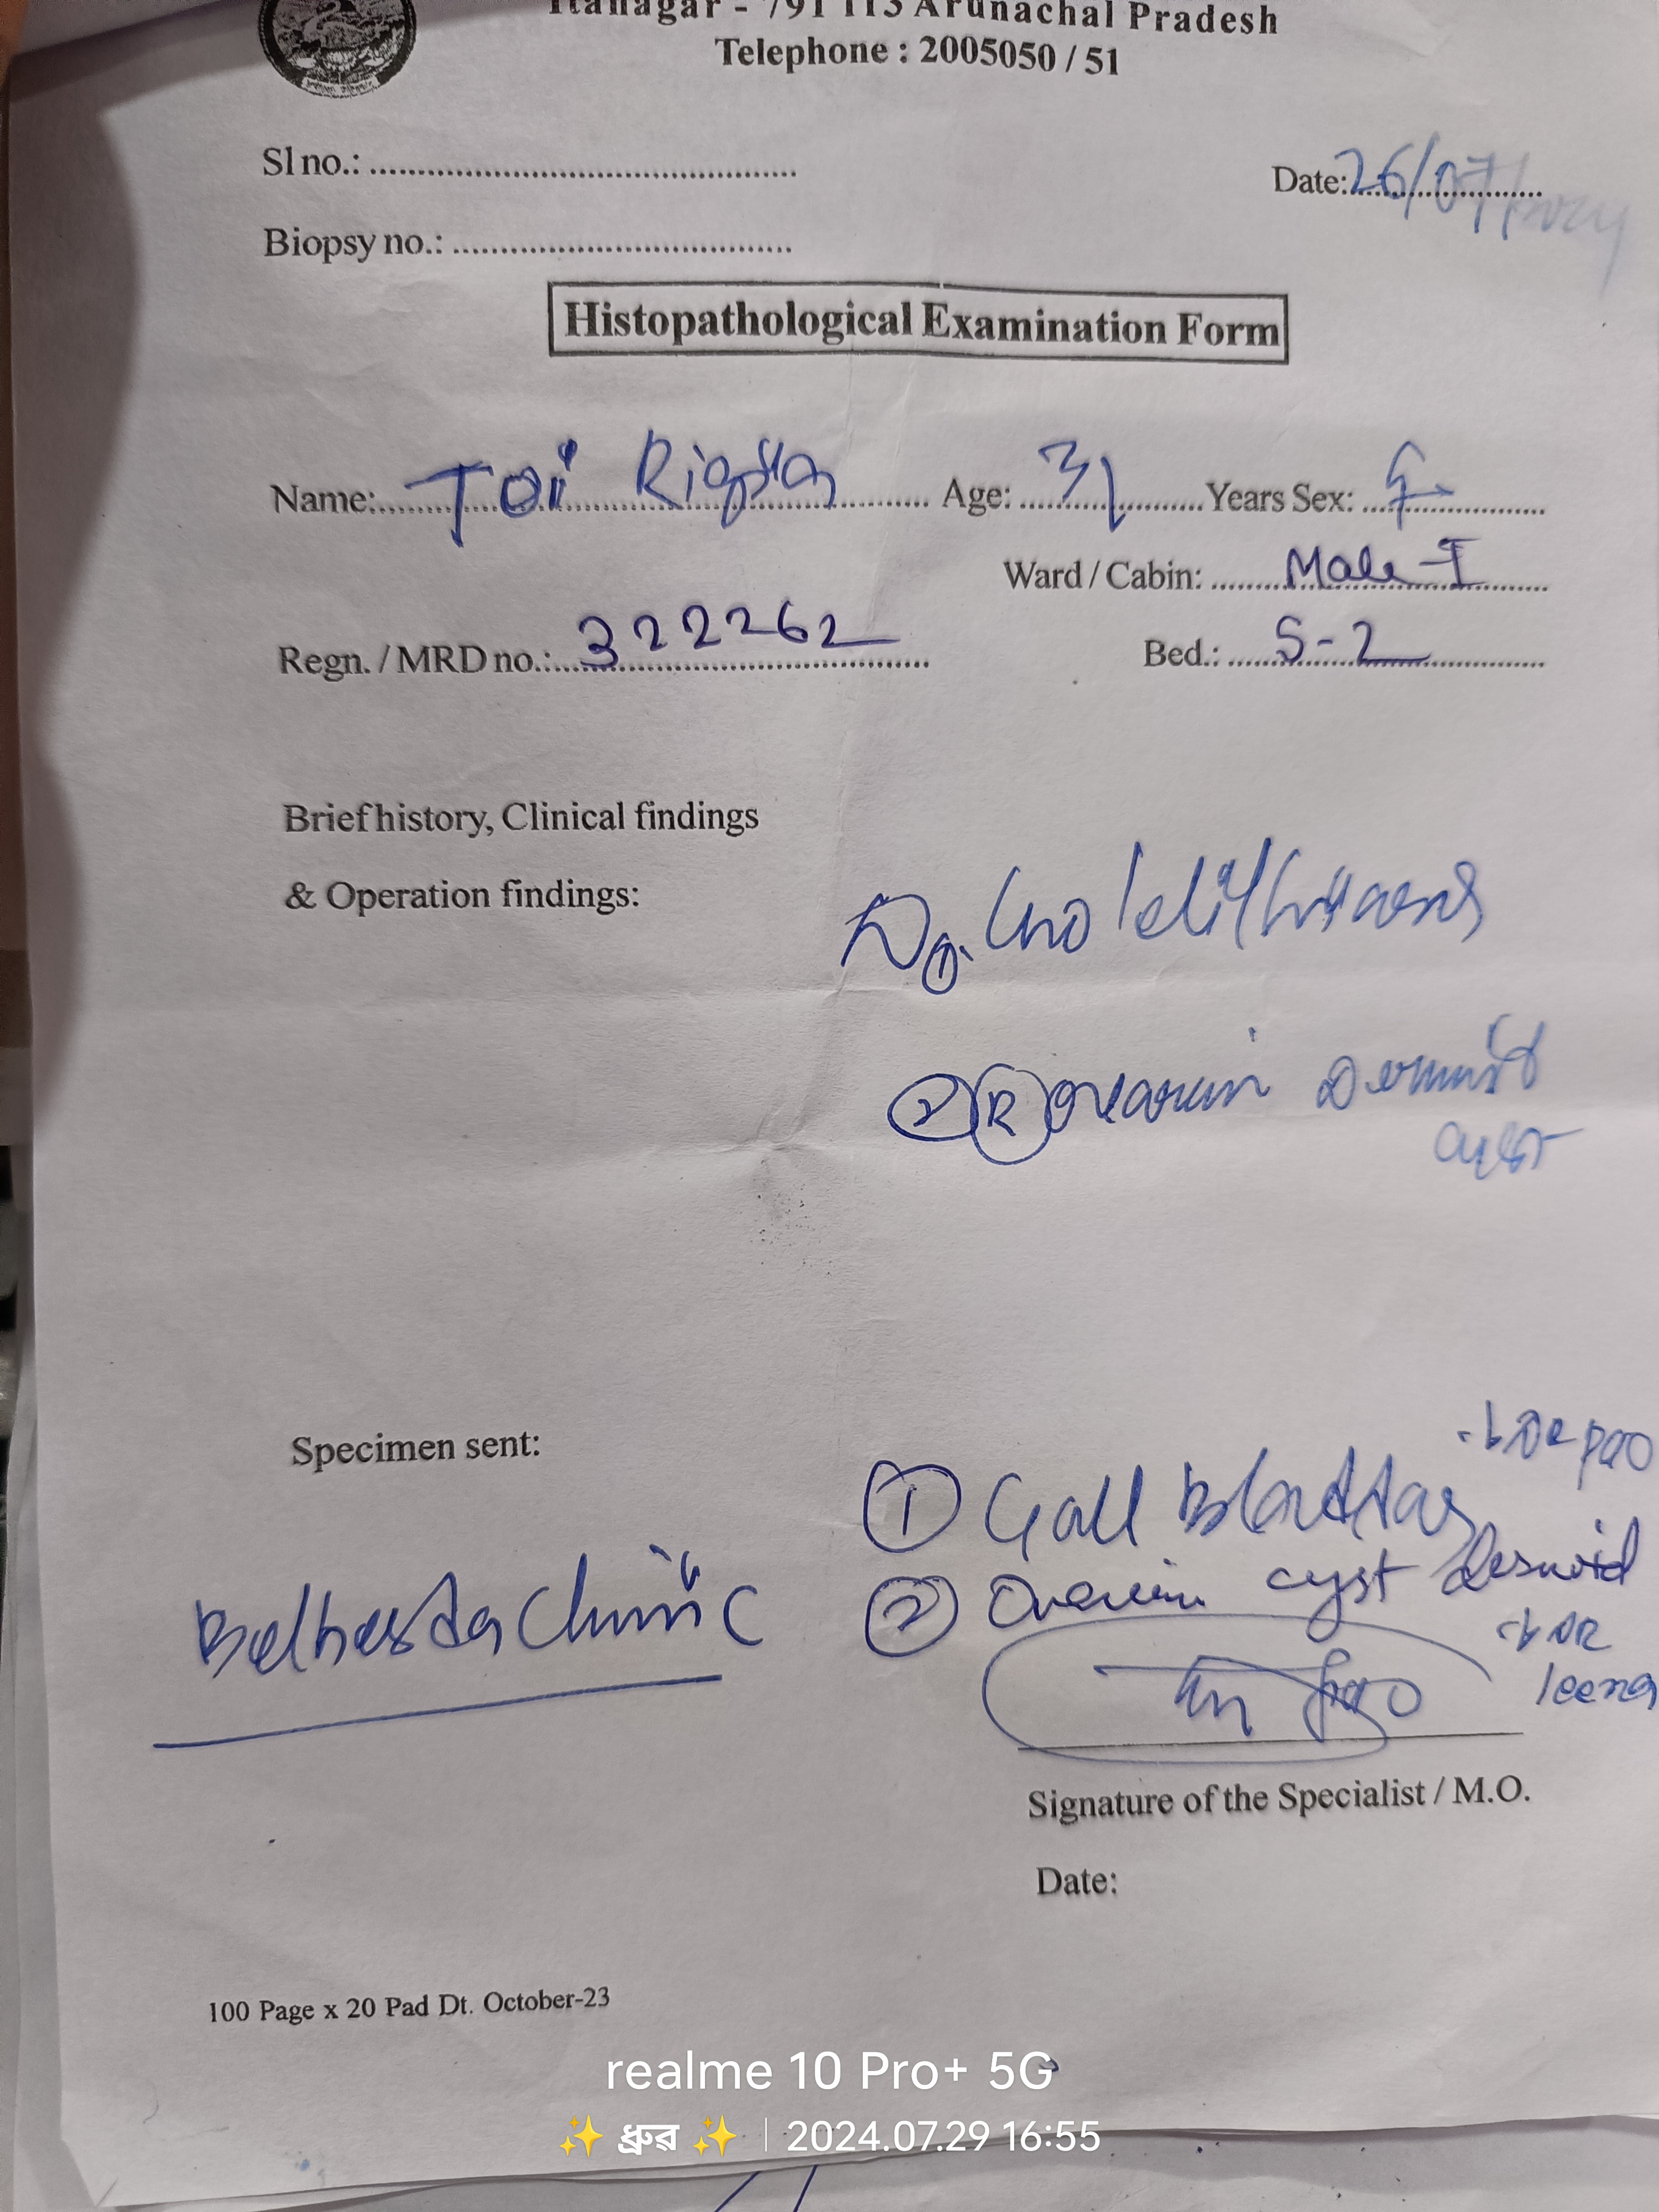 Itanagar - 791 113 Arunachal Pradesh
Telephone : 2005050 / 51
Sl no.:
Date: 26/07/2024
Biopsy no.:
Histopathological Examination Form
Name: Toi Age: 31 Years Sex: F
Ward / Cabin: Male - I
Regn. / MRD no.: 322262
Bed.: S-2
Brief history, Clinical findings
& Operation findings:
① Cholelithiasis
② Ⓡ Ovarian Dermoid
cyst
Specimen sent:
① Gall Bladder
② Ovarian cyst dermoid
DR
Leena
Clinic
Signature of the Specialist / M.O.
Date:
100 Page x 20 Pad Dt. October-23
realme 10 Pro+ 5G
✨ ধ্ৰুৱ ✨ | 2024.07.29 16:55